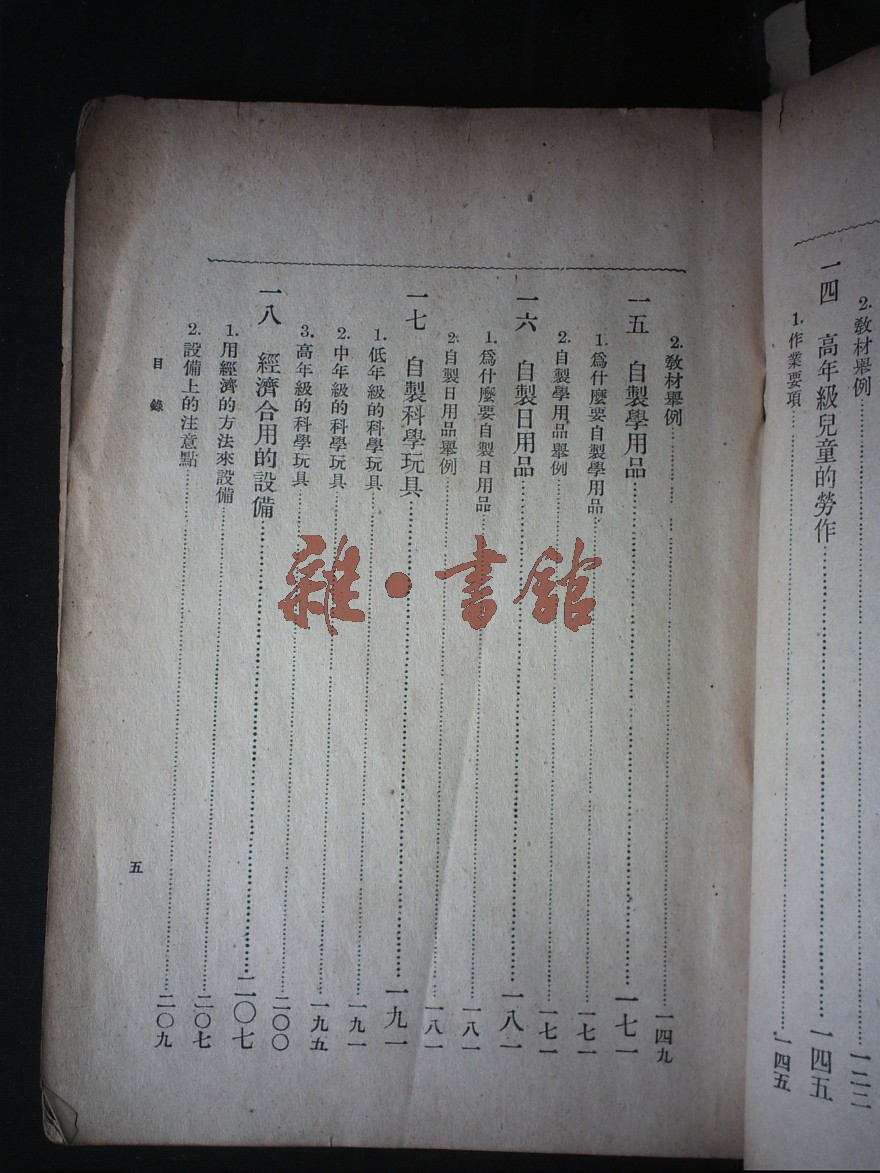 2. 教材舉例……一二二
一四 高年級兒童的勞作……一四五
1. 作業要項……一四五
2. 教材舉例……一四九
一五 自製學用品……一七一
1. 爲什麼要自製學用品……一七一
2. 自製學用品舉例……一七一
一六 自製日用品……一八一
1. 爲什麼要自製日用品……一八一
2. 自製日用品舉例……一八一
一七 自製科學玩具……一九一
1. 低年級的科學玩具……一九一
2. 中年級的科學玩具……一九五
3. 高年級的科學玩具……二〇〇
一八 經濟合用的設備……二〇七
1. 用經濟的方法來設備……二〇七
2. 設備上的注意點……二〇九
目錄
五
雜·書館